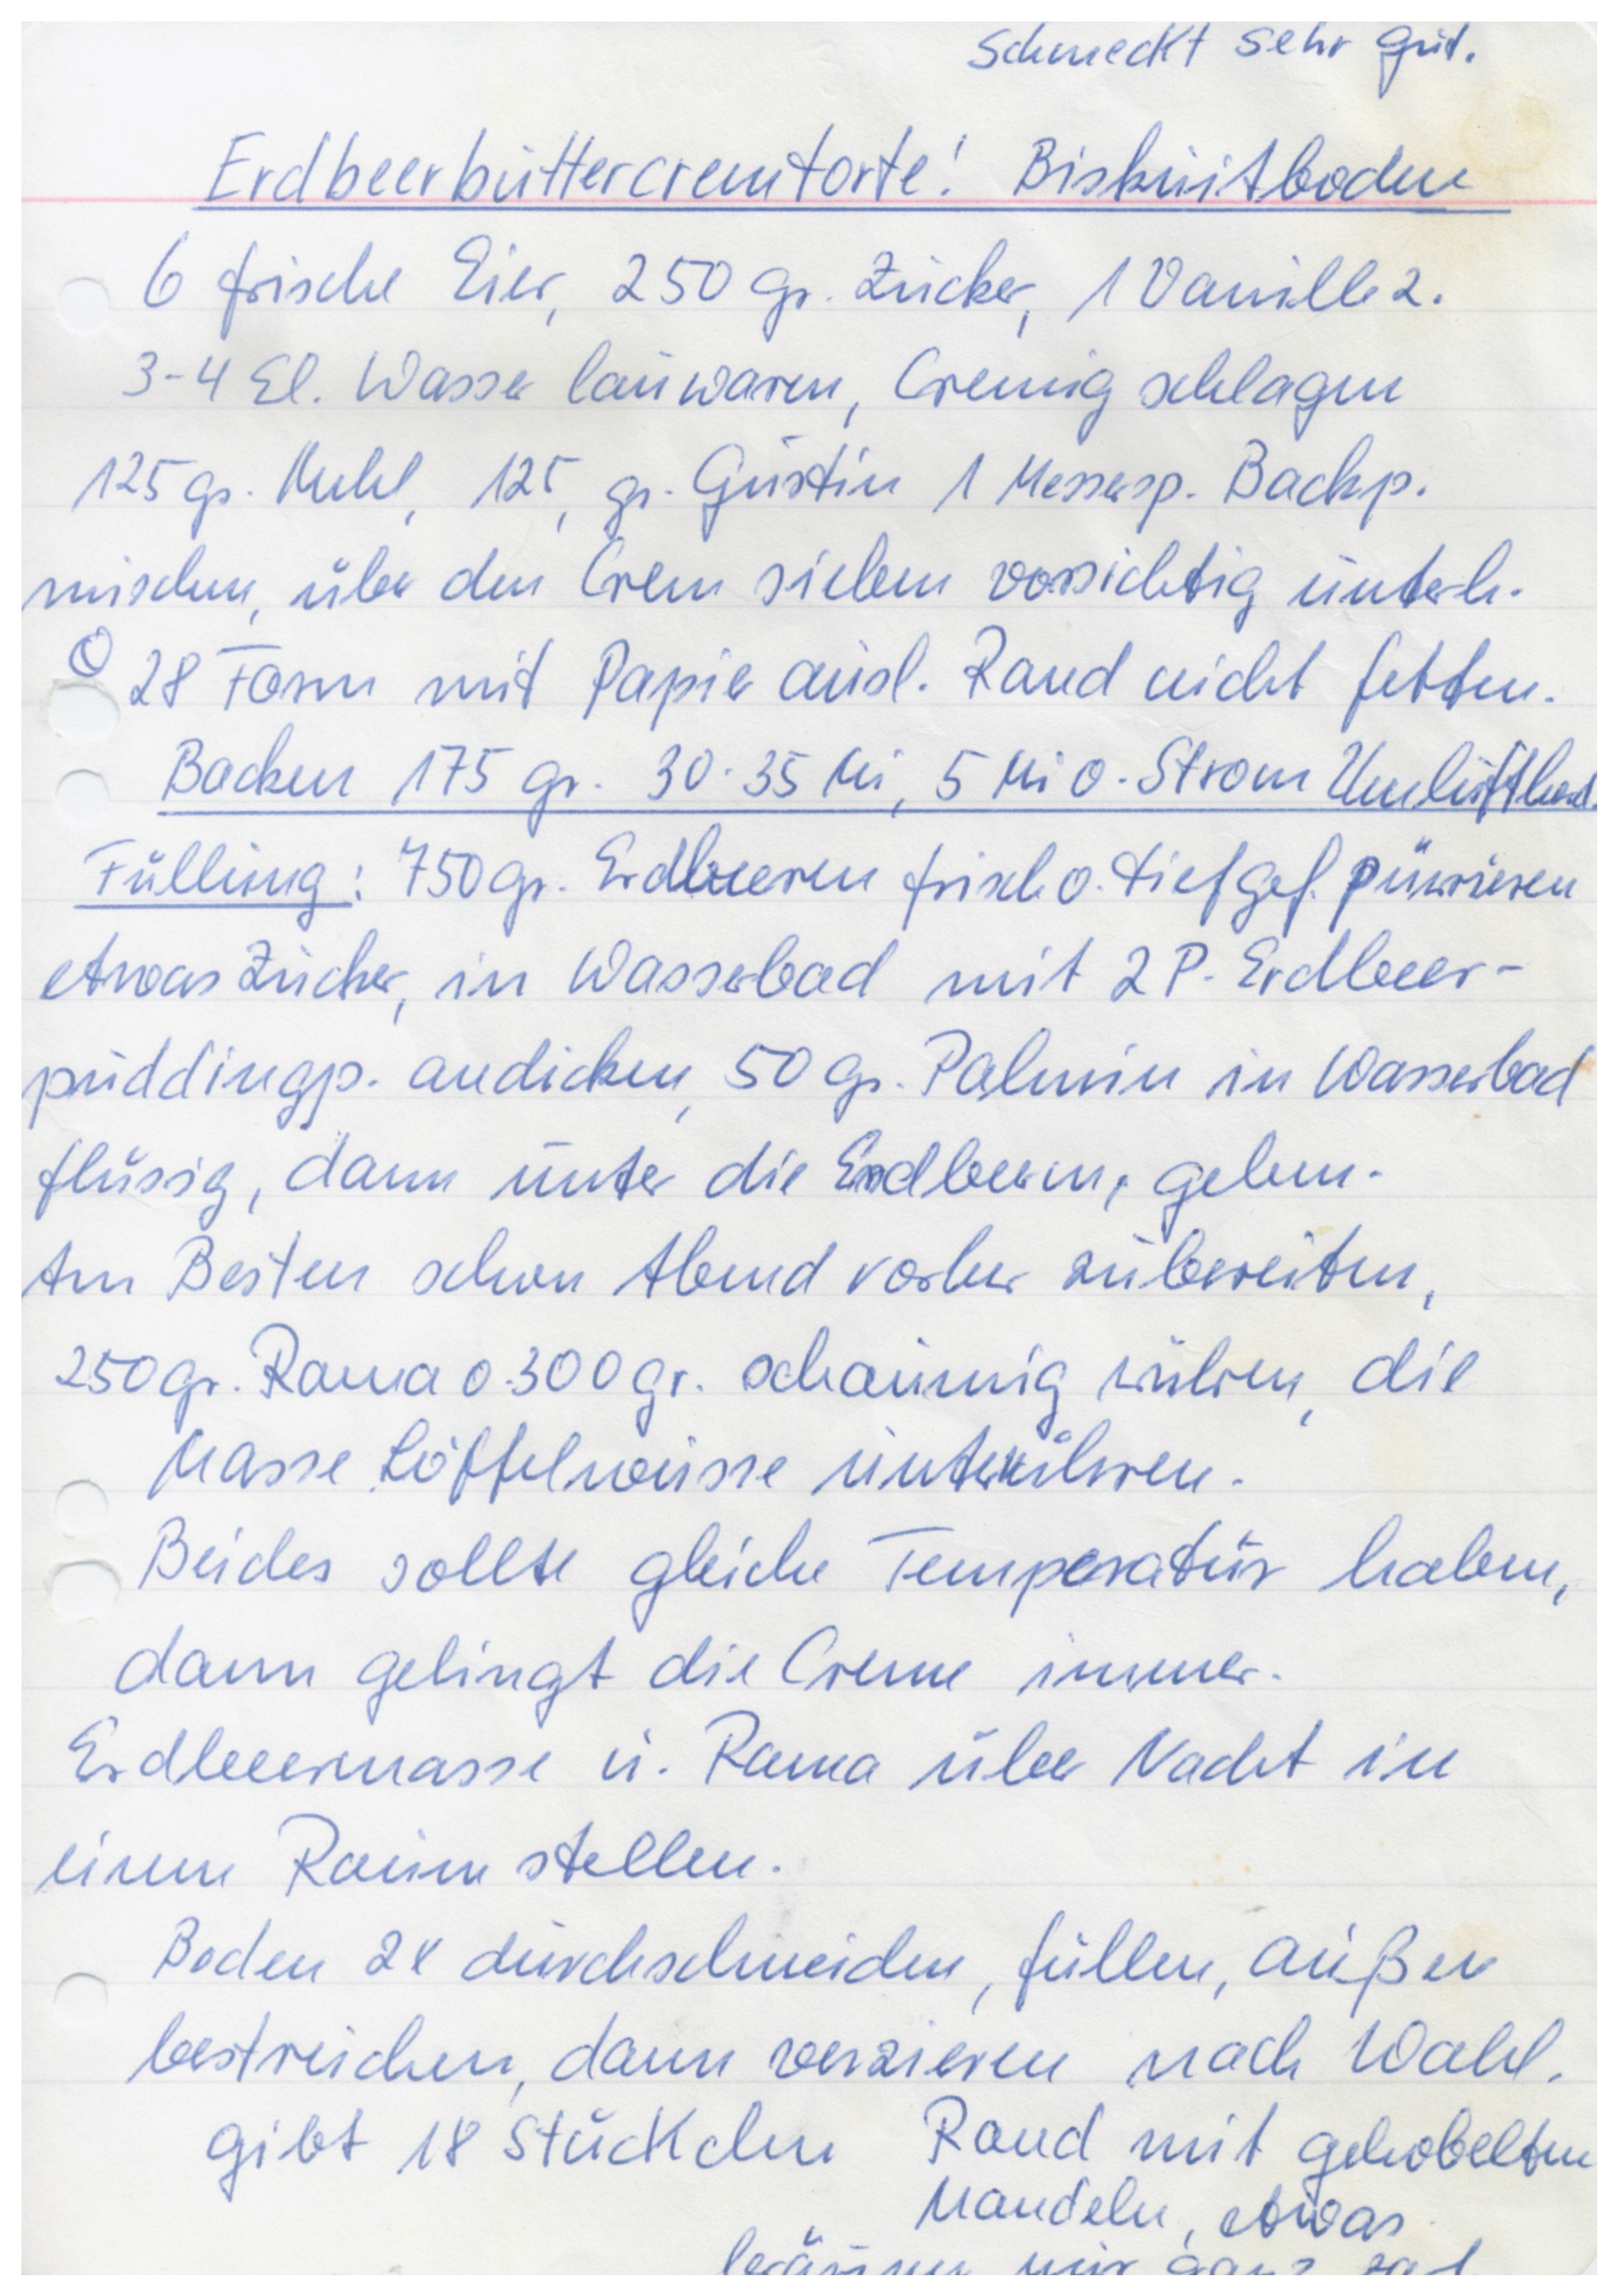 Schmeckt sehr gut.
Erdbeerbuttercremtorte! Biskuitboden
6 frische Eier, 250 gr. Zucker, 1 Vanillez.
3-4 El. Wasser lauwarm, Cremig schlagen
125 gr. Mehl, 125, gr. Gustin 1 Messersp. Backp.
mischen, über den Crem sieben vorsichtig unterh.
28 Form mit Papier ausl. Rand nicht fetten.
Backen 175 gr. 30-35 Mi, 5 Mi o. Strom Umluftherd.
Füllung: 750 gr. Erdbeeren frisch o. tiefgef. pürrieren
etwas Zucker, in Wasserbad mit 2 P. Erdbeer-
puddingp. andicken, 50 gr. Palmin in Wasserbad
flüssig, dann unter die Erdbeern, geben.
Am Besten schon Abend vorher zubereiten,
250 gr. Rama o. 300 gr. schaumig rühren, die
Masse Löffelweisse unterrühren.
Beides sollte gleiche Temperatur haben,
dann gelingt die Creme immer.
Erdbeermasse u. Rama über Nacht in
einem Raum stellen.
Boden 2x durchschneiden, füllen, außen
bestreichen, dann verzieren nach Wahl.
gibt 18 Stückchen Rand mit gehobelten
Mandeln, etwas
bräunen nur ganz zart